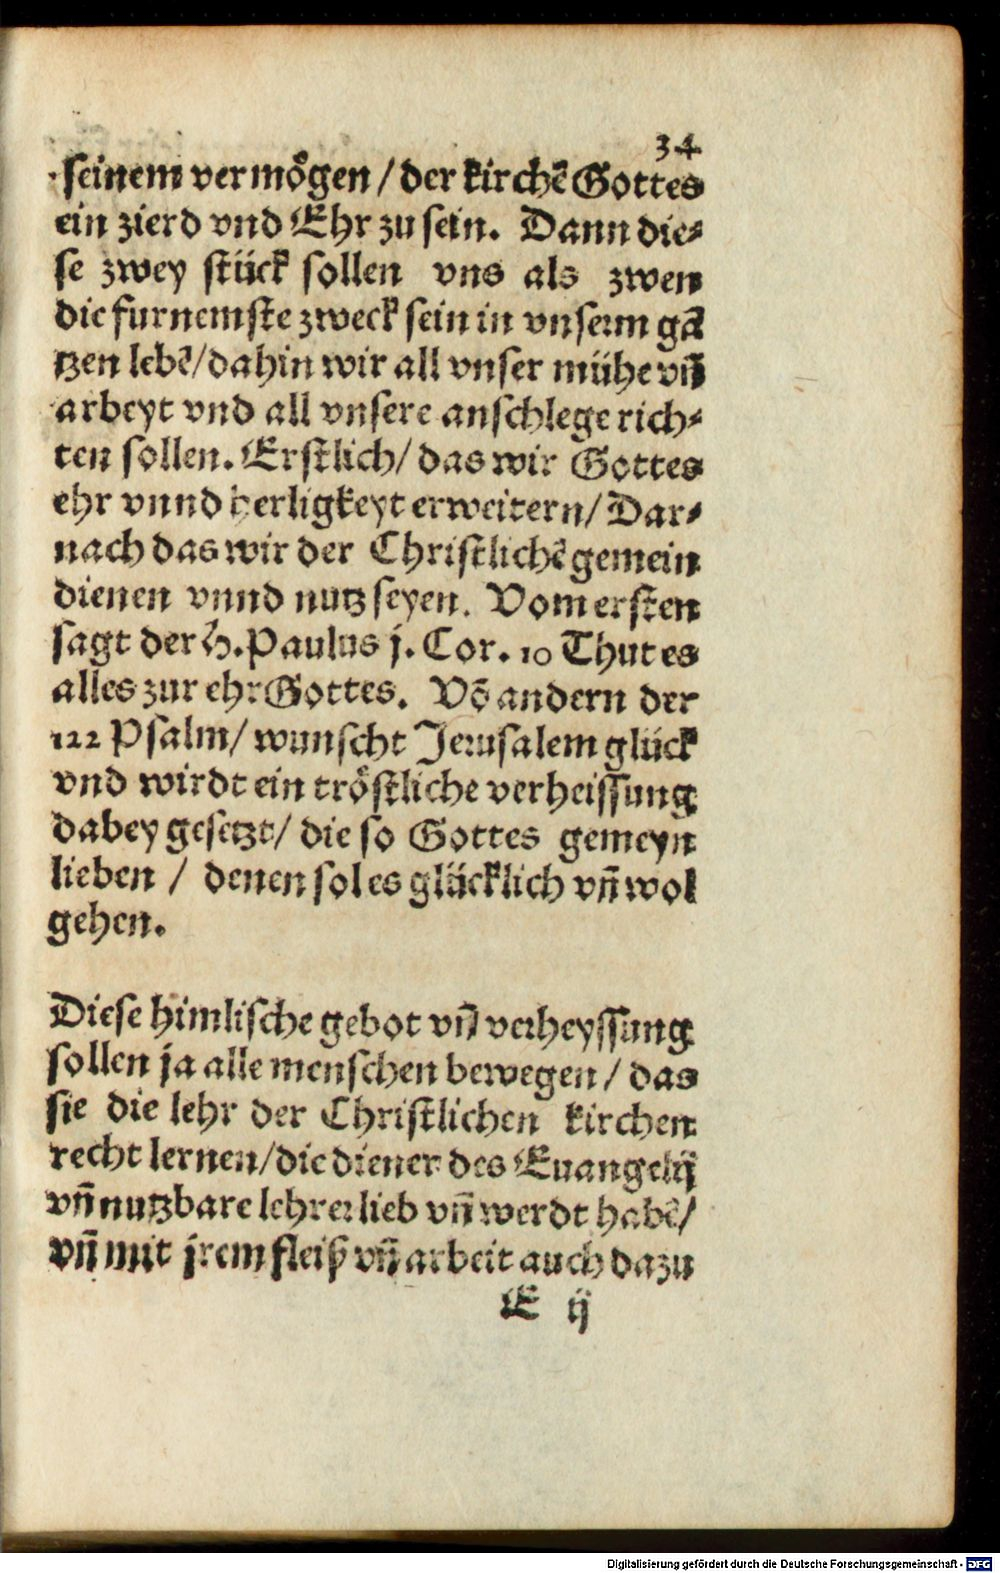 34
seinem vermoͤgen / der kirchē Gottes
ein zierd vnd Ehr zu sein. Dann die⸗
se zwey stück sollen vns als zwen
die furnemste zweck sein in vnserm gā
tzen lebē/ dahin wir all vnser mühe vn̄
arbeyt vnd all vnsere anschlege rich⸗
ten sollen. Erstlich/ das wir Gottes
ehr vnnd herligkeyt erweitern/ Dar⸗
nach das wir der Christlichē gemein
dienen vnnd nutz seyen. Vom ersten
sagt der H. Paulus j. Cor. 10 Thut es
alles zur ehr Gottes. Vō andern der
122 Psalm/ wunscht Jerusalem glück
vnd wirdt ein troͤstliche verheissung
dabey gesetzt/ die so Gottes gemeyn
lieben / denen sol es glücklich vn̄ wol
gehen.
Diese himlische gebot vn̄ verheyssung
sollen ja alle menschen bewegen / das
sie die lehr der Christlichen kirchen
recht lernen/ die diener des Euangelij
vn̄ nutzbare lehrer lieb vn̄ werdt habē/
vn̄ mit jrem fleiß vn̄ arbeit auch dazu
E ij
Digitalisierung gefördert durch die Deutsche Forschungsgemeinschaft - DFG